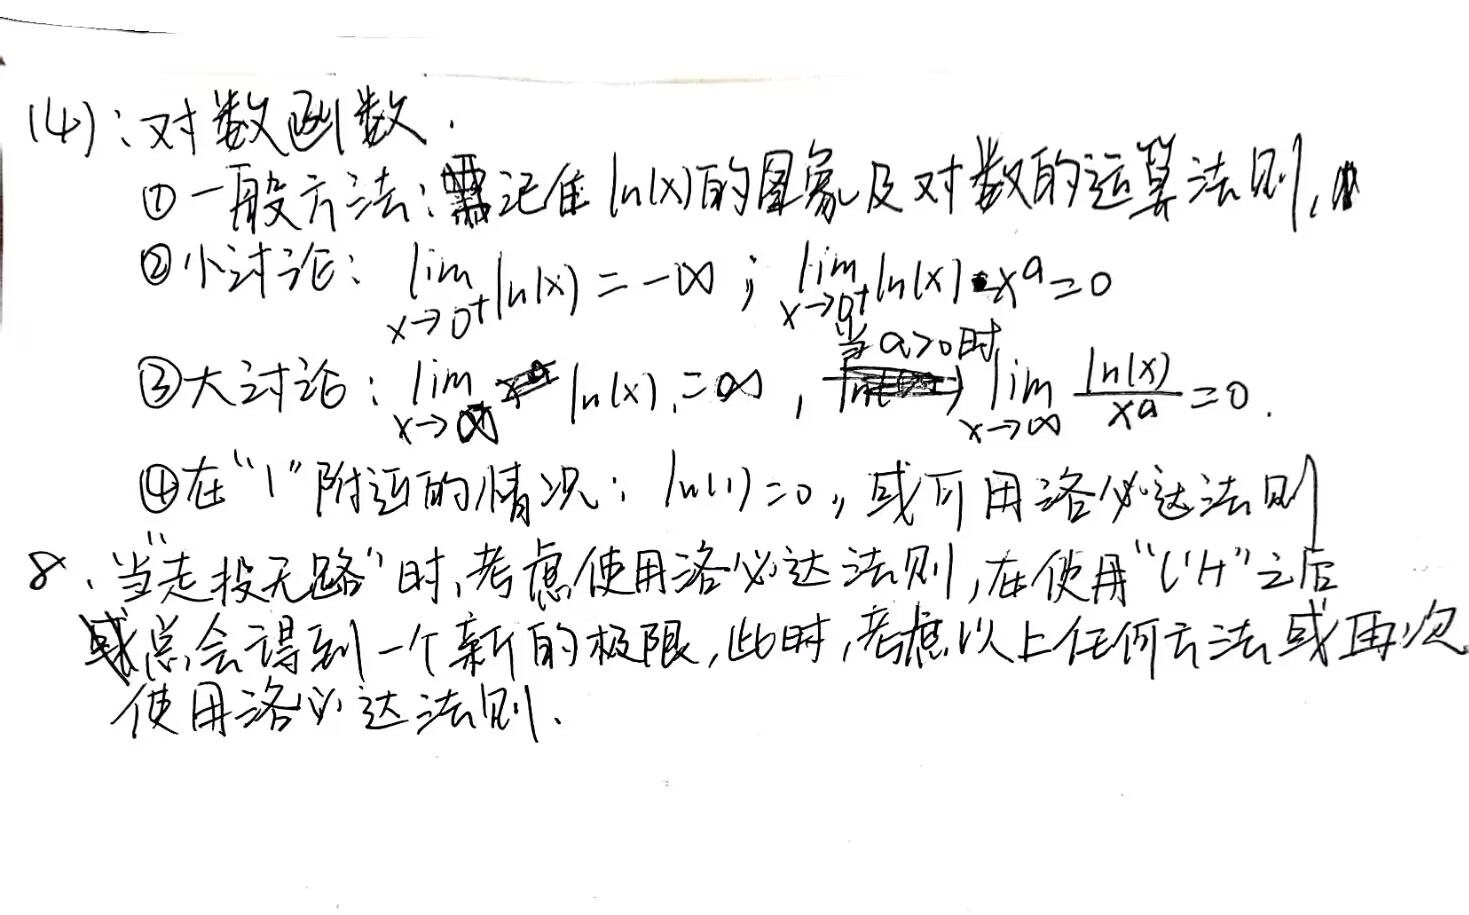 (4):对数函数.
①一般方法:记住ln(x)的图象及对数的运算法则,
②小讨论: lim x→0⁺ ln(x)=-∞; lim x→0⁺ ln(x)·xᵃ=0
当a>0时
③大讨论: lim x→∞ ln(x)=∞, lim x→∞ ln(x)/xᵃ=0.
④在“1”附近的情况: ln(1)=0,或可用洛必达法则
8、当“走投无路”时,考虑使用洛必达法则,在使用“L'H”之后
总会得到一个新的极限,此时,考虑以上任何方法或再次
使用洛必达法则.